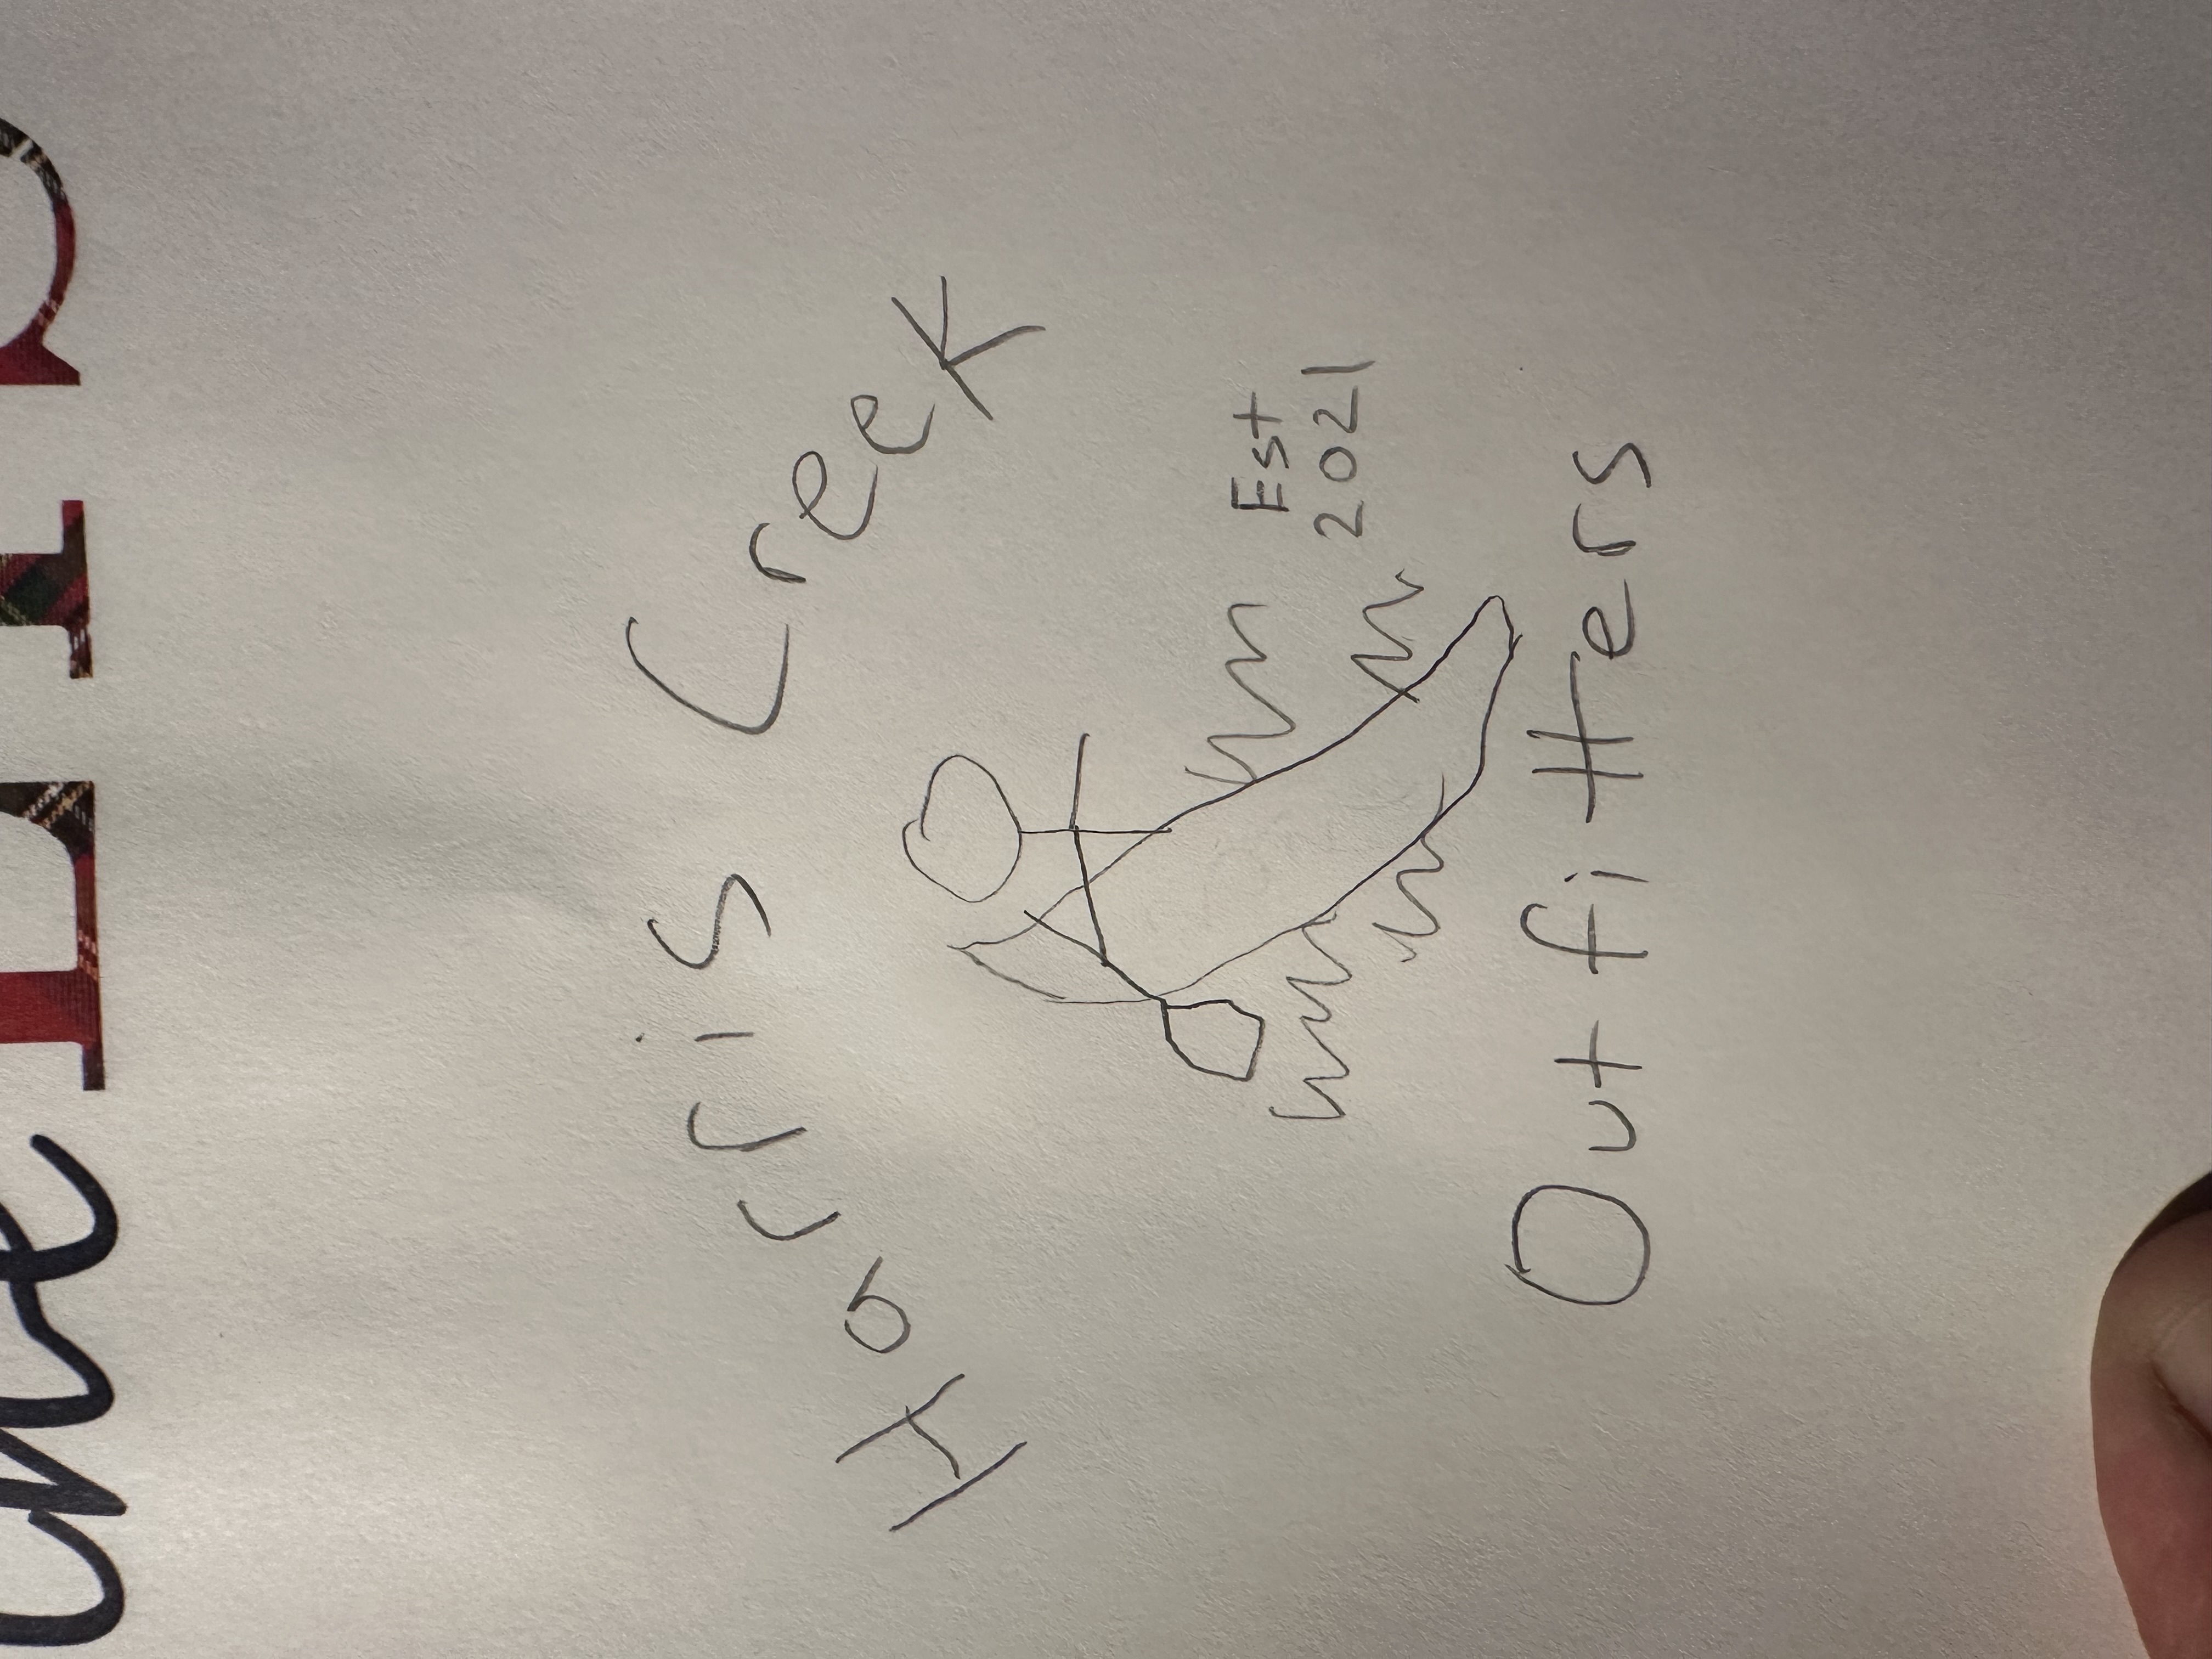 the
Harris Creek
Est
2021
Outfitters